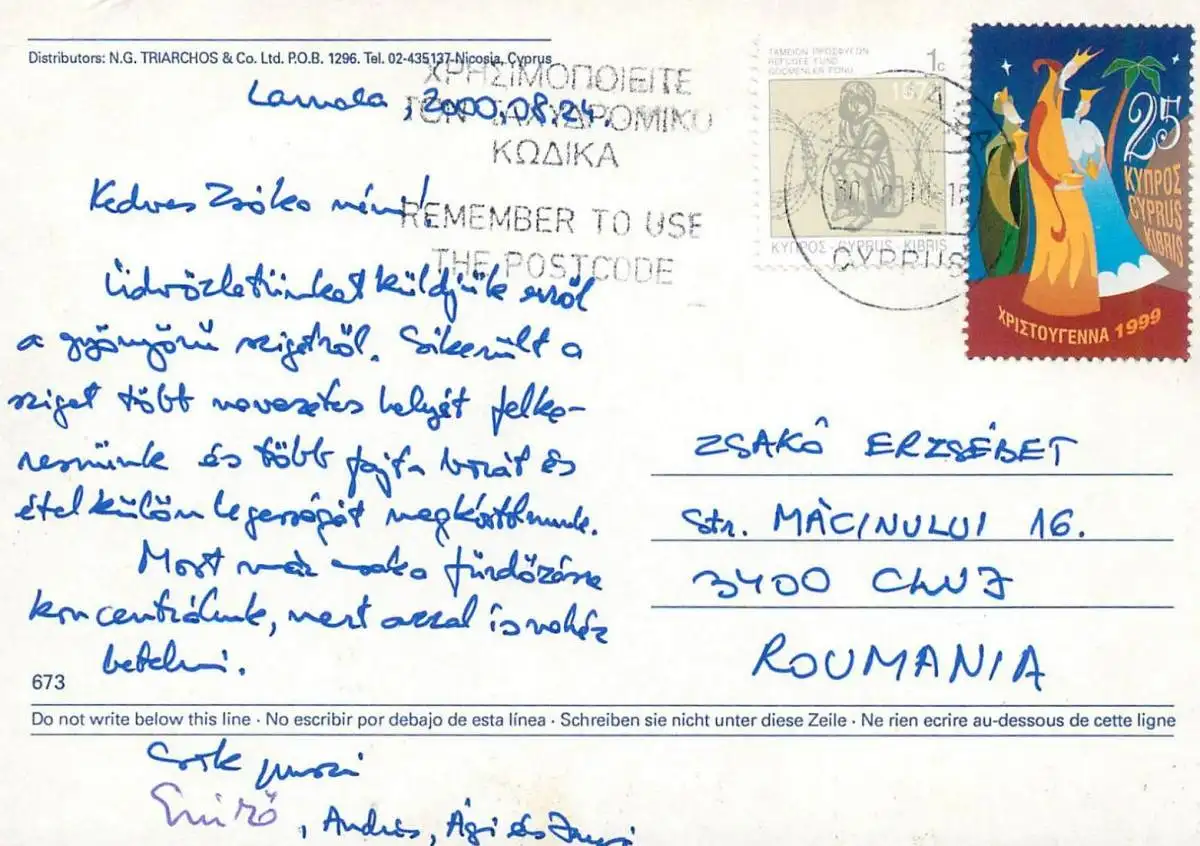 Distributors: N.G. TRIARCHOS & Co. Ltd. P.O.B. 1296. Tel. 02-435137-Nicosia, Cyprus
Larnaca, 2000.08.24.
ΧΡΗΣΙΜΟΠΟΙΕΙΤΕ
ΤΟΝ ΤΑΧΥΔΡΟΜΙΚΟ
ΚΩΔΙΚΑ
REMEMBER TO USE
THE POSTCODE
ΤΑΜΕΙΟΝ ΠΡΟΣΦΥΓΩΝ
REFUGEE FUND
GÖÇMENLER FONU
1c
1974
ΚΥΠΡΟΣ - CYPRUS - KIBRIS
CYPRUS
25
ΚΥΠΡΟΣ
CYPRUS
KIBRIS
ΧΡΙΣΤΟΥΓΕΝΝΑ 1999
Kedves Zsóka néni!
Üdvözletünket küldjük erről
a gyönyörű szigetről. Sikerült a
sziget több nevezetes helyét felke-
resnünk és több fajta borát és
étel különlegességét megkóstolnunk.
Most már csak a fürdőzésre
koncentrálunk, mert azzal is nehéz
betelni.
ZSAKÓ ERZSÉBET
Str. MĂCINULUI 16.
3400 CLUJ
ROUMANIA
673
Do not write below this line · No escribir por debajo de esta línea · Schreiben sie nicht unter diese Zeile · Ne rien ecrire au-dessous de cette ligne
Sok puszi
Emiző, András, Ági és